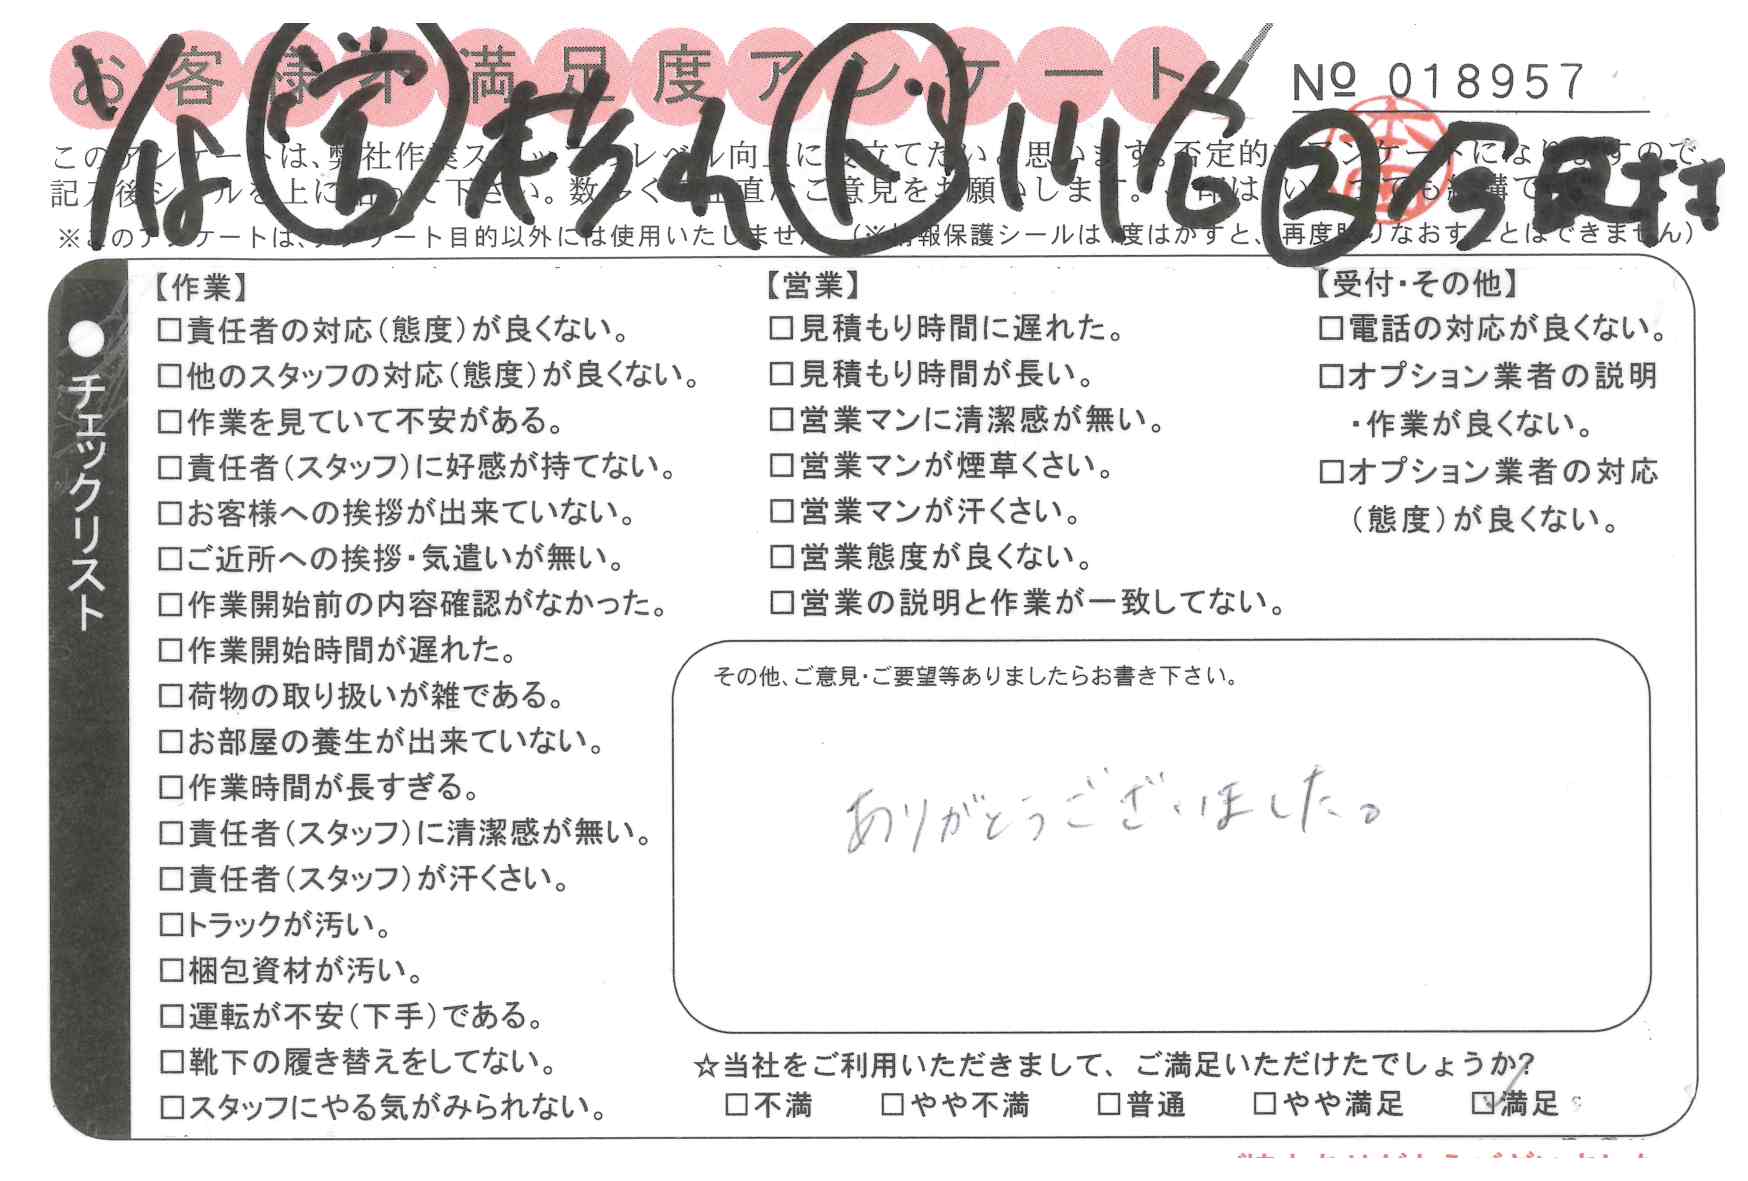 お客様不満足度アンケート
№ 018957
このアンケートは、弊社作業スタッフのレベル向上に役立てたいと思います。否定的なアンケートになりますので、
記入後シールを上に貼って下さい。数多くの正直なご意見をお願いします。
※このアンケートは、アンケート目的以外には使用いたしません。(※情報保護シールは1度はがすと、再度貼りなおすことはできません)
●チェックリスト
【作業】
□責任者の対応(態度)が良くない。
□他のスタッフの対応(態度)が良くない。
□作業を見ていて不安がある。
□責任者(スタッフ)に好感が持てない。
□お客様への挨拶が出来ていない。
□ご近所への挨拶・気遣いが無い。
□作業開始前の内容確認がなかった。
□作業開始時間が遅れた。
□荷物の取り扱いが雑である。
□お部屋の養生が出来ていない。
□作業時間が長すぎる。
□責任者(スタッフ)に清潔感が無い。
□責任者(スタッフ)が汗くさい。
□トラックが汚い。
□梱包資材が汚い。
□運転が不安(下手)である。
□靴下の履き替えをしてない。
□スタッフにやる気がみられない。
【営業】
□見積もり時間に遅れた。
□見積もり時間が長い。
□営業マンに清潔感が無い。
□営業マンが煙草くさい。
□営業マンが汗くさい。
□営業態度が良くない。
□営業の説明と作業が一致してない。
【受付・その他】
□電話の対応が良くない。
□オプション業者の説明
・作業が良くない。
□オプション業者の対応
(態度)が良くない。
その他、ご意見・ご要望等ありましたらお書き下さい。
ありがとうございました。
☆当社をご利用いただきまして、ご満足いただけたでしょうか?
□不満 □やや不満 □普通 □やや満足 ☑満足